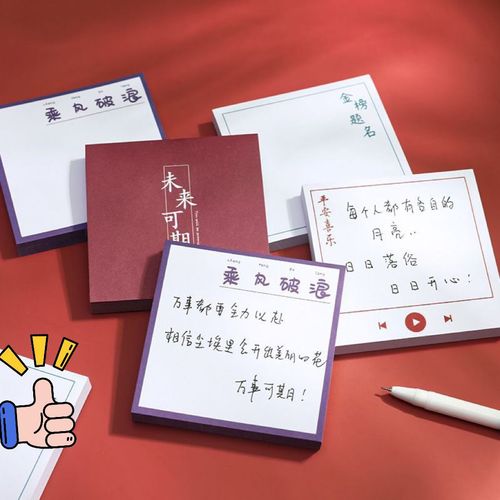 乘风破浪
金榜
题名
未来
可期
平安喜乐
每个人都有各自的
月亮..
日日落俗
日日开心!
乘风破浪
万事都要全力以赴
相信尘埃里会开出美丽的花
万事可期!